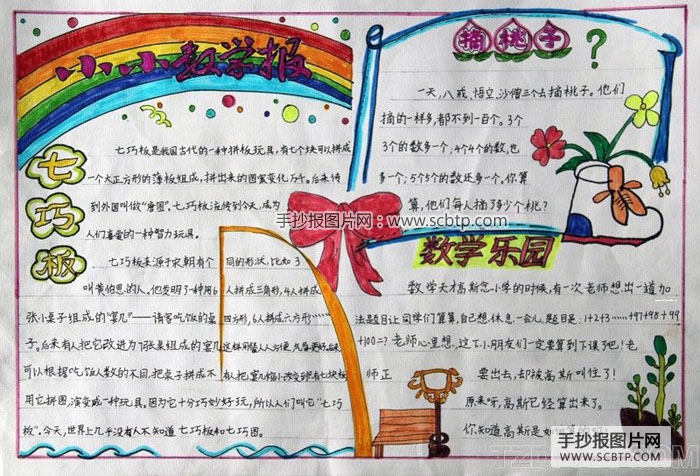 小小数学报
七巧板
七巧板是我国古代的一种拼板玩具,有七个块可以拼成
一个大正方形的薄板组成,拼出来的图案变化万千。后来传
到外国叫做“唐图”。七巧板流传到今天,成为
人们喜爱的一种智力玩具。
七巧板来源于宋朝有个
叫黄伯思的人。他发明了一种用6
张小桌子组成的“宴几”——请客吃饭的桌
子。后来有人把它改进为7张桌组成的宴几
可以根据吃饭人数的不同,把桌子拼成不
同的形状,比如3
人拼成三角形,4人拼成
四方形,6人拼成六方形……
这样用餐人人方便,气氛更好。后来
有人把宴几缩小改变到只有七块板
用它拼图,演变成一种玩具。因为它十分巧妙好玩,所以人们叫它“七巧
板”。今天,世界上几乎没有人不知道七巧板和七巧图。
摘桃子?
一天,八戒、悟空、沙僧三个去摘桃子。他们
摘的一样多,都不到一百个。3个
3个的数多一个;4个4个的数,也
多一个;5个5个的数还多一个。你算
算,他们每人摘了多少个桃?
数学乐园
数学天才高斯念小学的时候,有一次老师想出一道加
法题目让同学们算算,自己想休息一会儿,题目是:1+2+3……+97+98+99
+100=?老师心里想,这下小朋友们一定要算到下课了吧!老
师正要出去,却被高斯叫住了!
原来呀,高斯已经算出来了。
你知道高斯是如
手抄报图片网:www.scbtp.com
手抄报图片网
WWW.SCBTP.COM